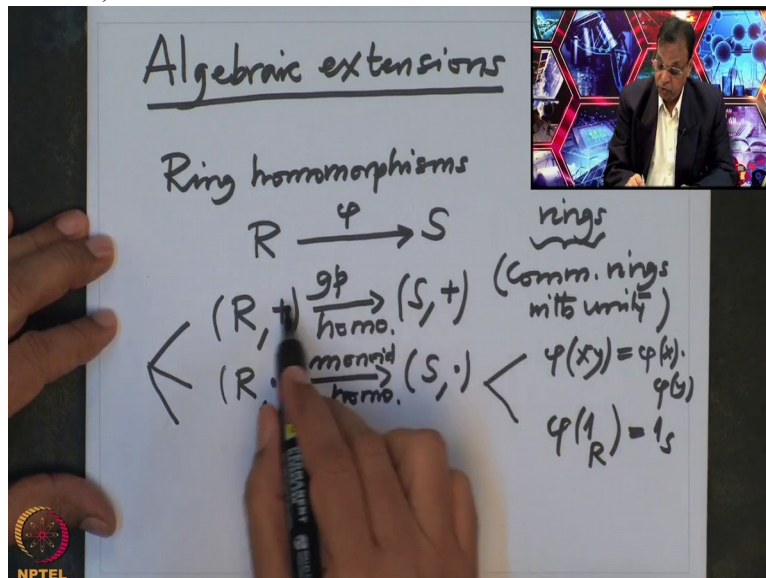 Algebraic extensions
Ring homomorphisms
R φ→ S
rings
(Comm. rings
with unity)
(R,+) gp homo.→ (S,+)
(R,·) monoid homo.→ (S,·)
φ(xy)=φ(x)·
φ(y)
φ(1_R)=1_S
NPTEL